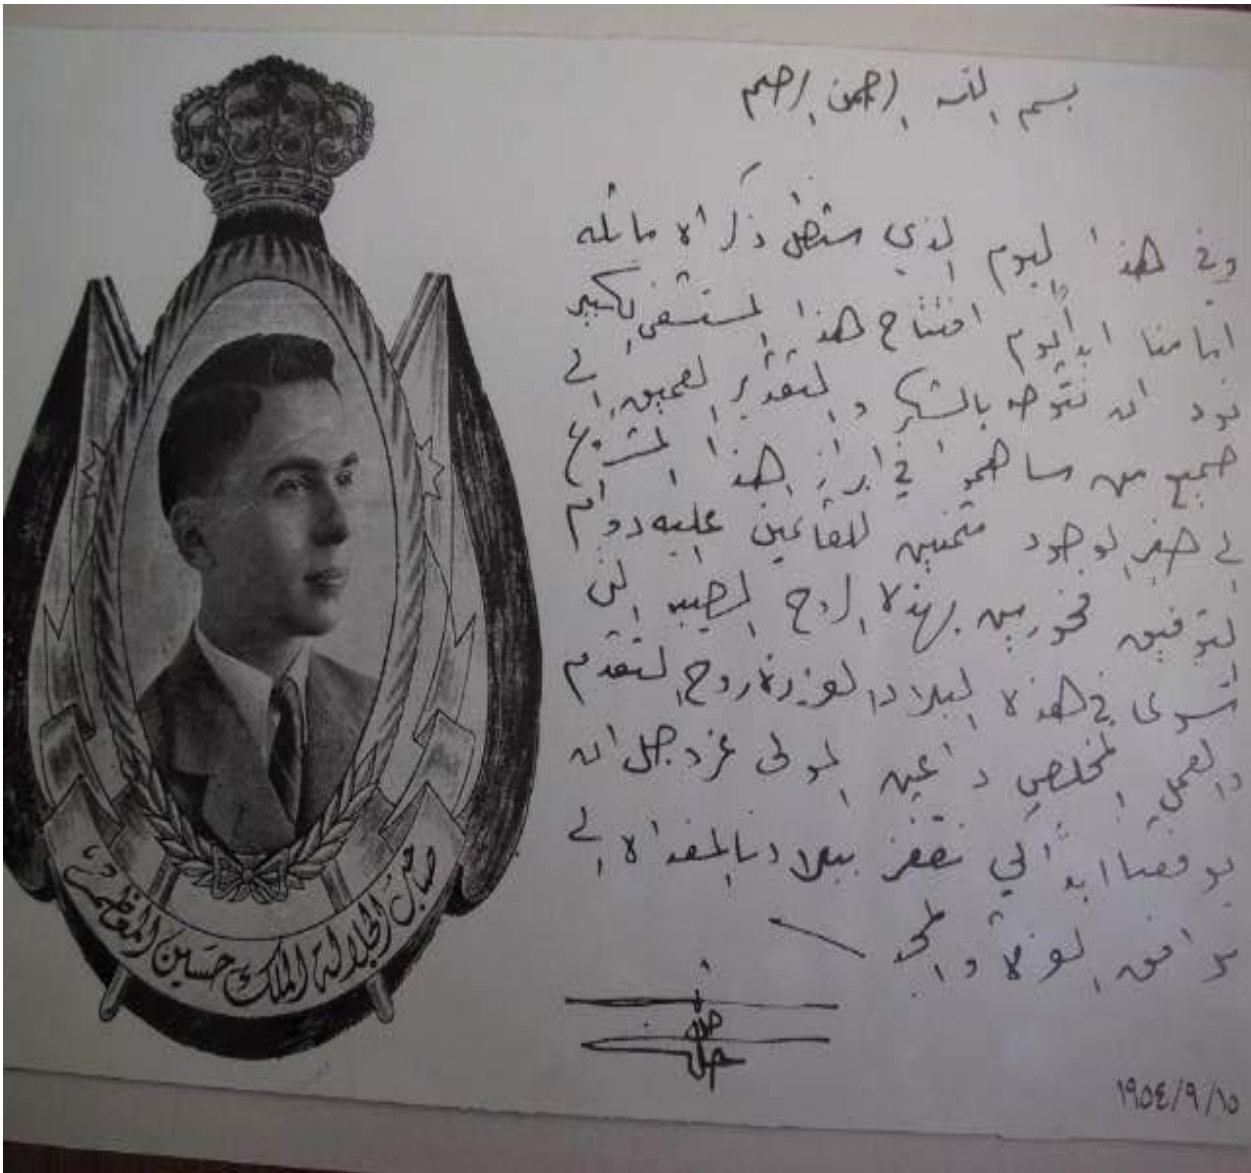 بسم الله الرحمن الرحيم
وفي هذا اليوم الذي ستظل ذكراه ماثله
امامنا ابداً يوم افتتاح هذا المستشفى الكبير
نود ان نتوجه بالشكر والتقدير العميق الى
جميع من ساهموا في ابراز هذا المشروع
الى حيز الوجود متمنين للقائمين عليه دوام
التوفيق فخورين بهذه الروح الطيبه التي
تسري في هذه البلاد العزيزة روح التقدم
والعمل المخلص داعين المولى عز وجل ان
يوفقنا ابداً لكي نقفز ببلادنا المفداه الى
مرافق العزة والمجد
١٩٥٤/٩/١٥
صاحب الجلالة الملك حسين المعظم